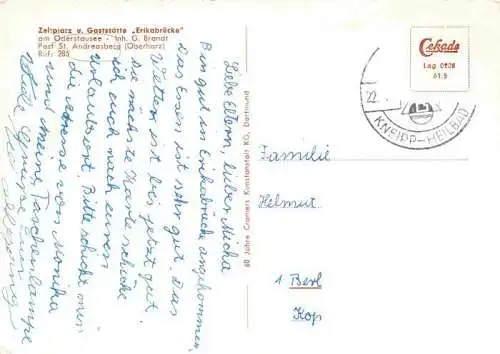 Zeltplatz u. Gaststätte „Erikabrücke"
am Oderstausee - Inh. G. Brandt
Post St. Andreasberg (Oberharz)
Ruf: 285
Liebe Eltern, lieber Micha
Bin gut in Erikabrücke angekommen,
das Essen ist sehr gut. Das
Wetter ist bis jetzt gut
die nächste Karte schicke
ich euch nach euren
Urlaubsort. Bitte schickt mir
die Adresse von Monika
und meine Taschenlampe
Viele Grüße Euer
60 Jahre Cramers Kunstanstalt KG, Dortmund
Cekade
Lag 0128
61.5
22.
KNEIPP-HEILBAD
Familie
Helmut
1 Berl
Kop